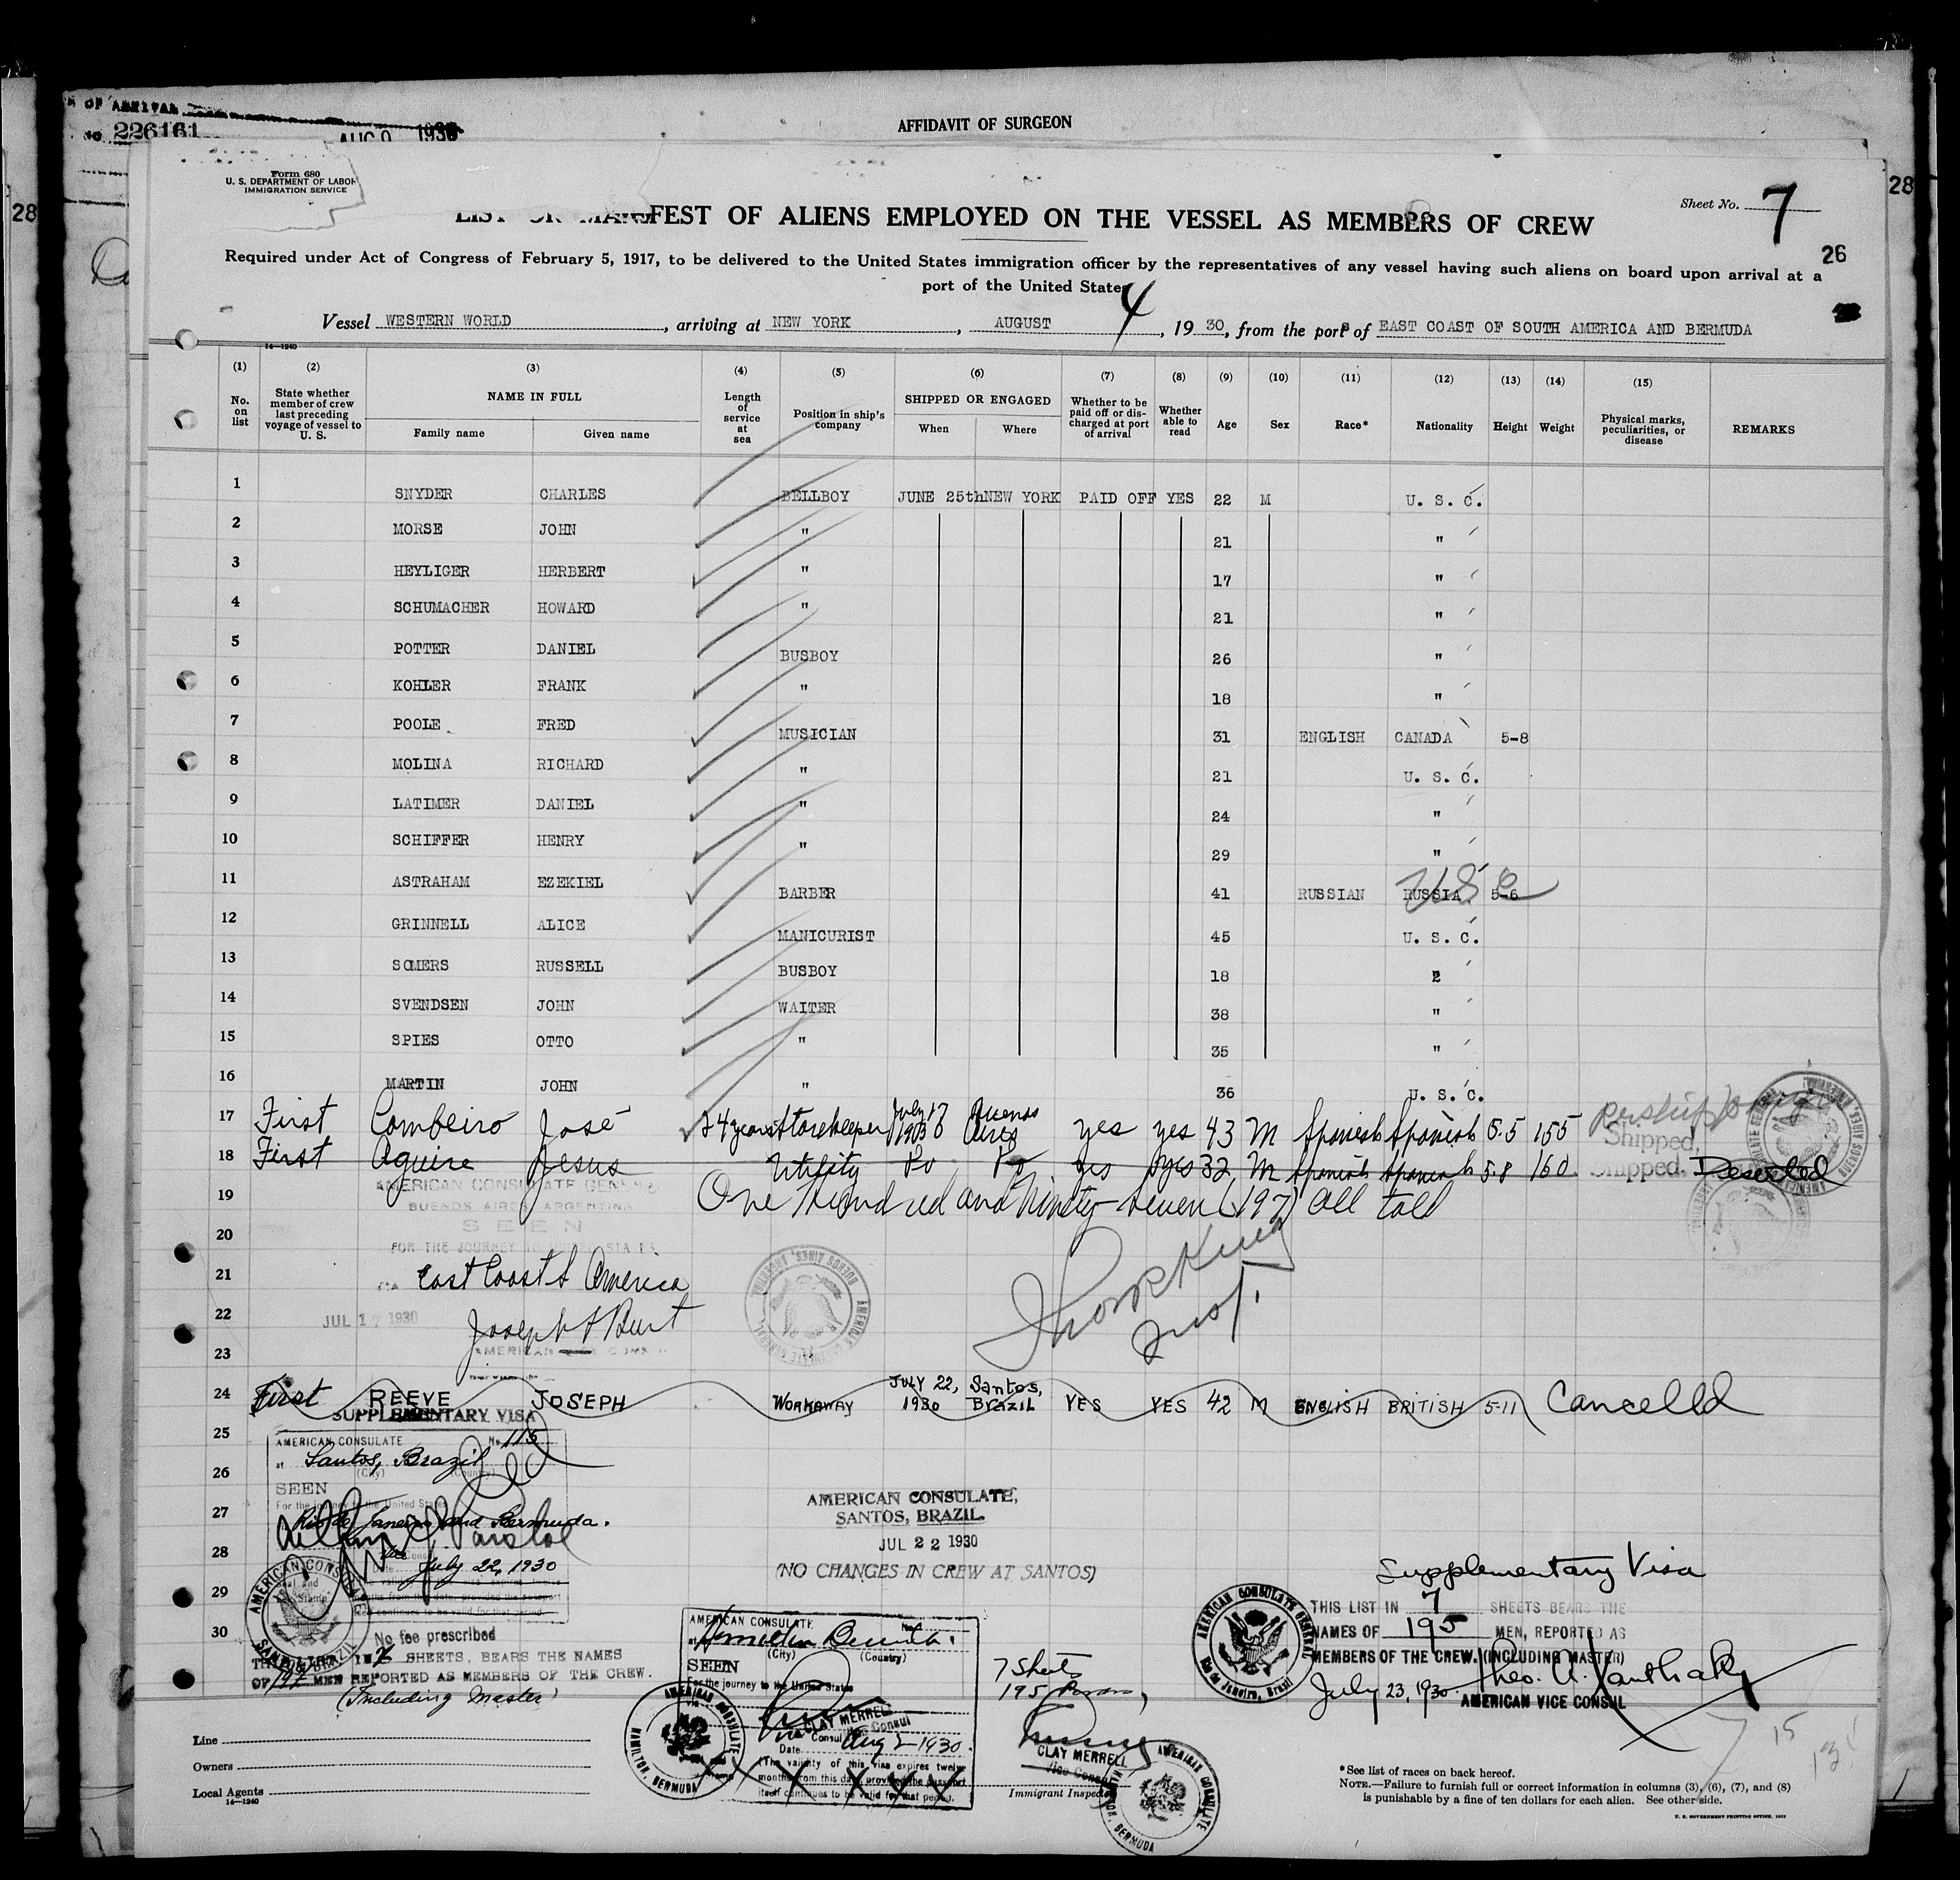 OF ARRIVAL
No. 226161
AUG 1930
AFFIDAVIT OF SURGEON
28
28
Form 680
U. S. DEPARTMENT OF LABOR
IMMIGRATION SERVICE
Sheet No. 7
LIST OR MANIFEST OF ALIENS EMPLOYED ON THE VESSEL AS MEMBERS OF CREW
26
Required under Act of Congress of February 5, 1917, to be delivered to the United States immigration officer by the representatives of any vessel having such aliens on board upon arrival at a
port of the United States
Vessel WESTERN WORLD, arriving at NEW YORK, AUGUST 4, 1930, from the ports of EAST COAST OF SOUTH AMERICA AND BERMUDA
14—1240
(1) (2) (3) (4) (5) (6) (7) (8) (9) (10) (11) (12) (13) (14) (15)
No. on list State whether member of crew last preceding voyage of vessel to U. S. NAME IN FULL Family name Given name Length of service at sea Position in ship's company SHIPPED OR ENGAGED When Where Whether to be paid off or discharged at port of arrival Whether able to read Age Sex Race* Nationality Height Weight Physical marks, peculiarities, or disease REMARKS
1 SNYDER CHARLES BELLBOY JUNE 25th NEW YORK PAID OFF YES 22 M U. S. C.
2 MORSE JOHN " 21 "
3 HEYLIGER HERBERT " 17 "
4 SCHUMACHER HOWARD " 21 "
5 POTTER DANIEL BUSBOY 26 "
6 KOHLER FRANK " 18 "
7 POOLE FRED MUSICIAN 31 ENGLISH CANADA 5-8
8 MOLINA RICHARD " 21 U. S. C.
9 LATIMER DANIEL " 24 "
10 SCHIFFER HENRY " 29 "
11 ASTRAHAM EZEKIEL BARBER 41 RUSSIAN RUSSIA USC 5-6
12 GRINNELL ALICE MANICURIST 45 U. S. C.
13 SOMERS RUSSELL BUSBOY 18 2
14 SVENDSEN JOHN WAITER 38 "
15 SPIES OTTO " 35 "
16 MARTIN JOHN " 36 U. S. C.
17 First Combeiro José 24 years Storekeeper July 17 1930 Buenos Aires yes yes 43 M Spanish Spanish 5.5 155 Shipped,
18 First Aguire Jesus Utility Do Do yes yes 32 M Spanish Spanish 5.8 160 Shipped. Deserted
19 One Hundred and Ninety-seven (197) all told
AMERICAN CONSULATE GENERAL
BUENOS AIRES ARGENTINA
20 SEEN
FOR THE JOURNEY TO UNITED STATES
21 East Coast S America
22 JUL 17 1930
Joseph F Burt
23 AMERICAN CONSUL
24 First REEVE JOSEPH WORKAWAY JULY 22, 1930 Santos, BRAZIL YES YES 42 M ENGLISH BRITISH 5-11 Cancelled
SUPPLEMENTARY VISA
25 AMERICAN CONSULATE No. 115
at Santos, Brazil
(City) (Country)
26 SEEN
For the journey to the United States
27 Rio de Janeiro and Bermuda.
28 July 22, 1930
29
30 No fee prescribed
AMERICAN CONSULATE
SANTOS, BRAZIL
THIS LIST IN 7 SHEETS, BEARS THE NAMES
OF 197 MEN REPORTED AS MEMBERS OF THE CREW.
(Including Master)
AMERICAN CONSULATE,
SANTOS, BRAZIL.
JUL 22 1930
(NO CHANGES IN CREW AT SANTOS)
AMERICAN CONSULATE
at Hamilton Bermuda.
(City) (Country)
SEEN
For the journey to the United States
CLAY MERRELL
Vice Consul
Date Aug 2 1930.
(The validity of this visa expires twelve
months from this date, provided the passport
itself continues to be valid for that period.
AMERICAN CONSULATE HAMILTON, BERMUDA
7 Sheets
195 Persons
CLAY MERRELL
Vice Consul
Immigrant Inspector
AMERICAN CONSULATE HAMILTON, BERMUDA
Supplementary Visa
AMERICAN CONSULATE GENERAL Rio de Janeiro, Brazil
THIS LIST IN 7 SHEETS BEARS THE
NAMES OF 195 MEN, REPORTED AS
MEMBERS OF THE CREW. (INCLUDING MASTER)
July 23, 1930. Theo. A. Xanthaky
AMERICAN VICE CONSUL
15
Line
Owners
Local Agents
14—1240
*See list of races on back hereof.
NOTE.—Failure to furnish full or correct information in columns (3), (6), (7), and (8)
is punishable by a fine of ten dollars for each alien. See other side.
U. S. GOVERNMENT PRINTING OFFICE